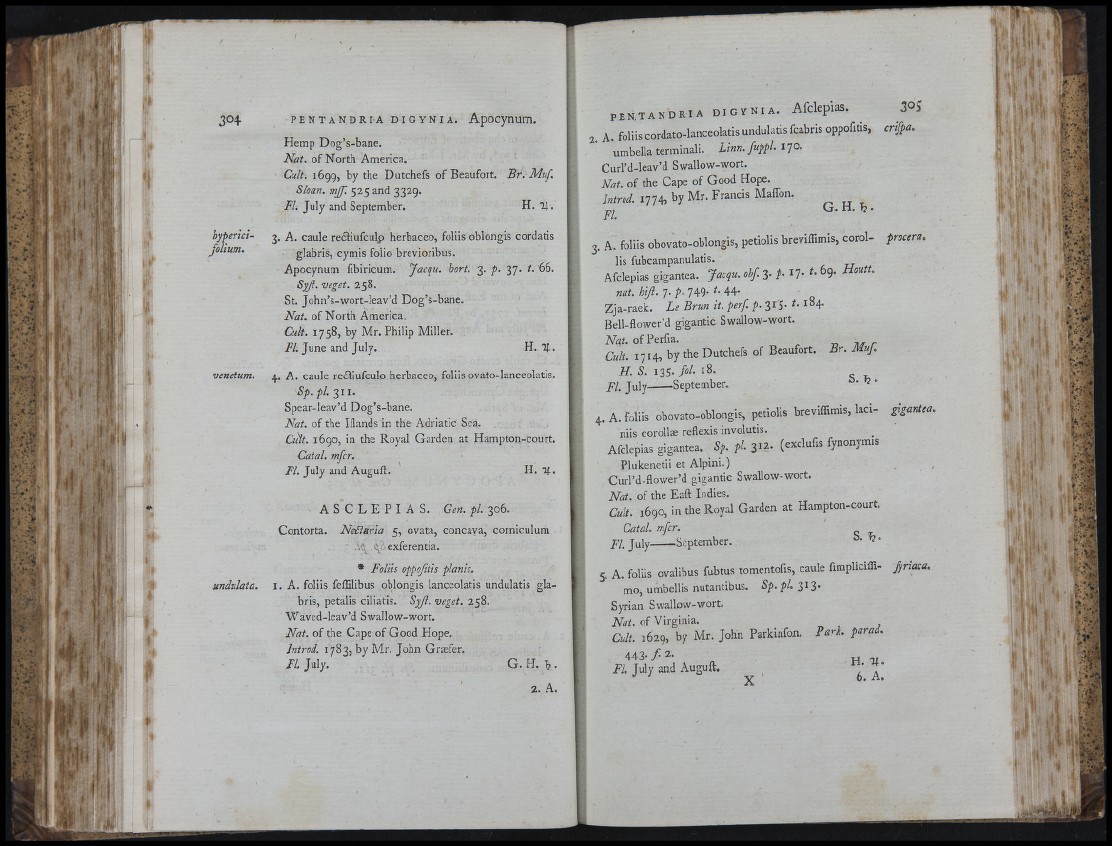 304 PENTANDRIA DIGYNIA. Apocynum.
Hemp Dog's-bane.
Nat. of North America.
Cult. 1699, by the Dutchefs of Beaufort. Br. Muf.
Sloan. mff. 525 and 3329.
Fl. July and September. H. ♃.
hyperici- 3. A. caule rectiufculo herbaceo, foliis oblongis cordatis
folium. glabris, cymis folio brevioribus.
Apocynum fibiricum. Jacqu. hort. 3. p. 37. t. 66.
Syft. veget. 258.
St. John's-wort-leav'd Dog's-bane.
Nat. of North America.
Cult. 1758, by Mr. Philip Miller.
Fl. June and July. H. ♃.
venetum. 4. A. caule rectiufculo herbaceo, foliis ovato-lanceolatis.
Sp. pl. 311.
Spear-leav'd Dog's-bane.
Nat. of the Iflands in the Adriatic Sea.
Cult. 1690, in the Royal Garden at Hampton-court.
Catal. mfcr.
Fl. July and Auguft. H. ♃.
ASCLEPIAS. Gen. pl. 306.
Contorta. Nectaria 5, ovata, concava, corniculum
exferentia.
* Foliis oppofitis planis.
undulata. 1. A. foliis feffilibus oblongis lanceolatis undulatis gla-
bris, petalis ciliatis. Syft. veget. 258.
Waved-leav'd Swallow-wort.
Nat. of the Cape of Good Hope.
Introd. 1783, by Mr. John Græfer.
Fl. July. G. H. ♄.
2. A.
PENTANDRIA DIGYNIA. Afclepias. 305
2. A. foliis cordato-lanceolatis undulatis fcabris oppofitis, crifpa.
umbella terminali. Linn. fuppl. 170.
Curl'd-leav'd Swallow-wort.
Nat. of the Cape of Good Hope.
Introd. 1774, by Mr. Francis Maffon.
Fl. G. H. ♄.
3. A. foliis obovato-oblongis, petiolis breviffimis, corol- procera.
lis fubcampanulatis.
Afclepias gigantea. Jacqu. obf. 3. p. 17. t. 69. Houtt.
nat. hift. 7. p. 749. t. 44.
Zja-raek. Le Brun it. perf. p. 315. t. 184.
Bell-flower'd gigantic Swallow-wort.
Nat. of Perfia.
Cult. 1714, by the Dutchefs of Beaufort. Br. Muf.
H. S. 135. fol. 18.
Fl. July——September. S. ♄.
4. A. foliis obovato-oblongis, petiolis breviffimis, laci- gigantea.
niis corollæ reflexis involutis.
Afclepias gigantea. Sp. pl. 312. (exclufis fynonymis
Plukenetii et Alpini.)
Curl'd-flower'd gigantic Swallow-wort.
Nat. of the Eaft Indies.
Cult. 1690, in the Royal Garden at Hampton-court.
Catal. mfcr.
Fl. July——September. S. ♄.
5. A. foliis ovalibus fubtus tomentofis, caule fimpliciffi- fyriaca.
mo, umbellis nutantibus. Sp. pl. 313.
Syrian Swallow-wort.
Nat. of Virginia.
Cult. 1629, by Mr. John Parkinfon. Park. parad.
443. f. 2.
Fl. July and Auguft. H. ♃.
X 6. A.